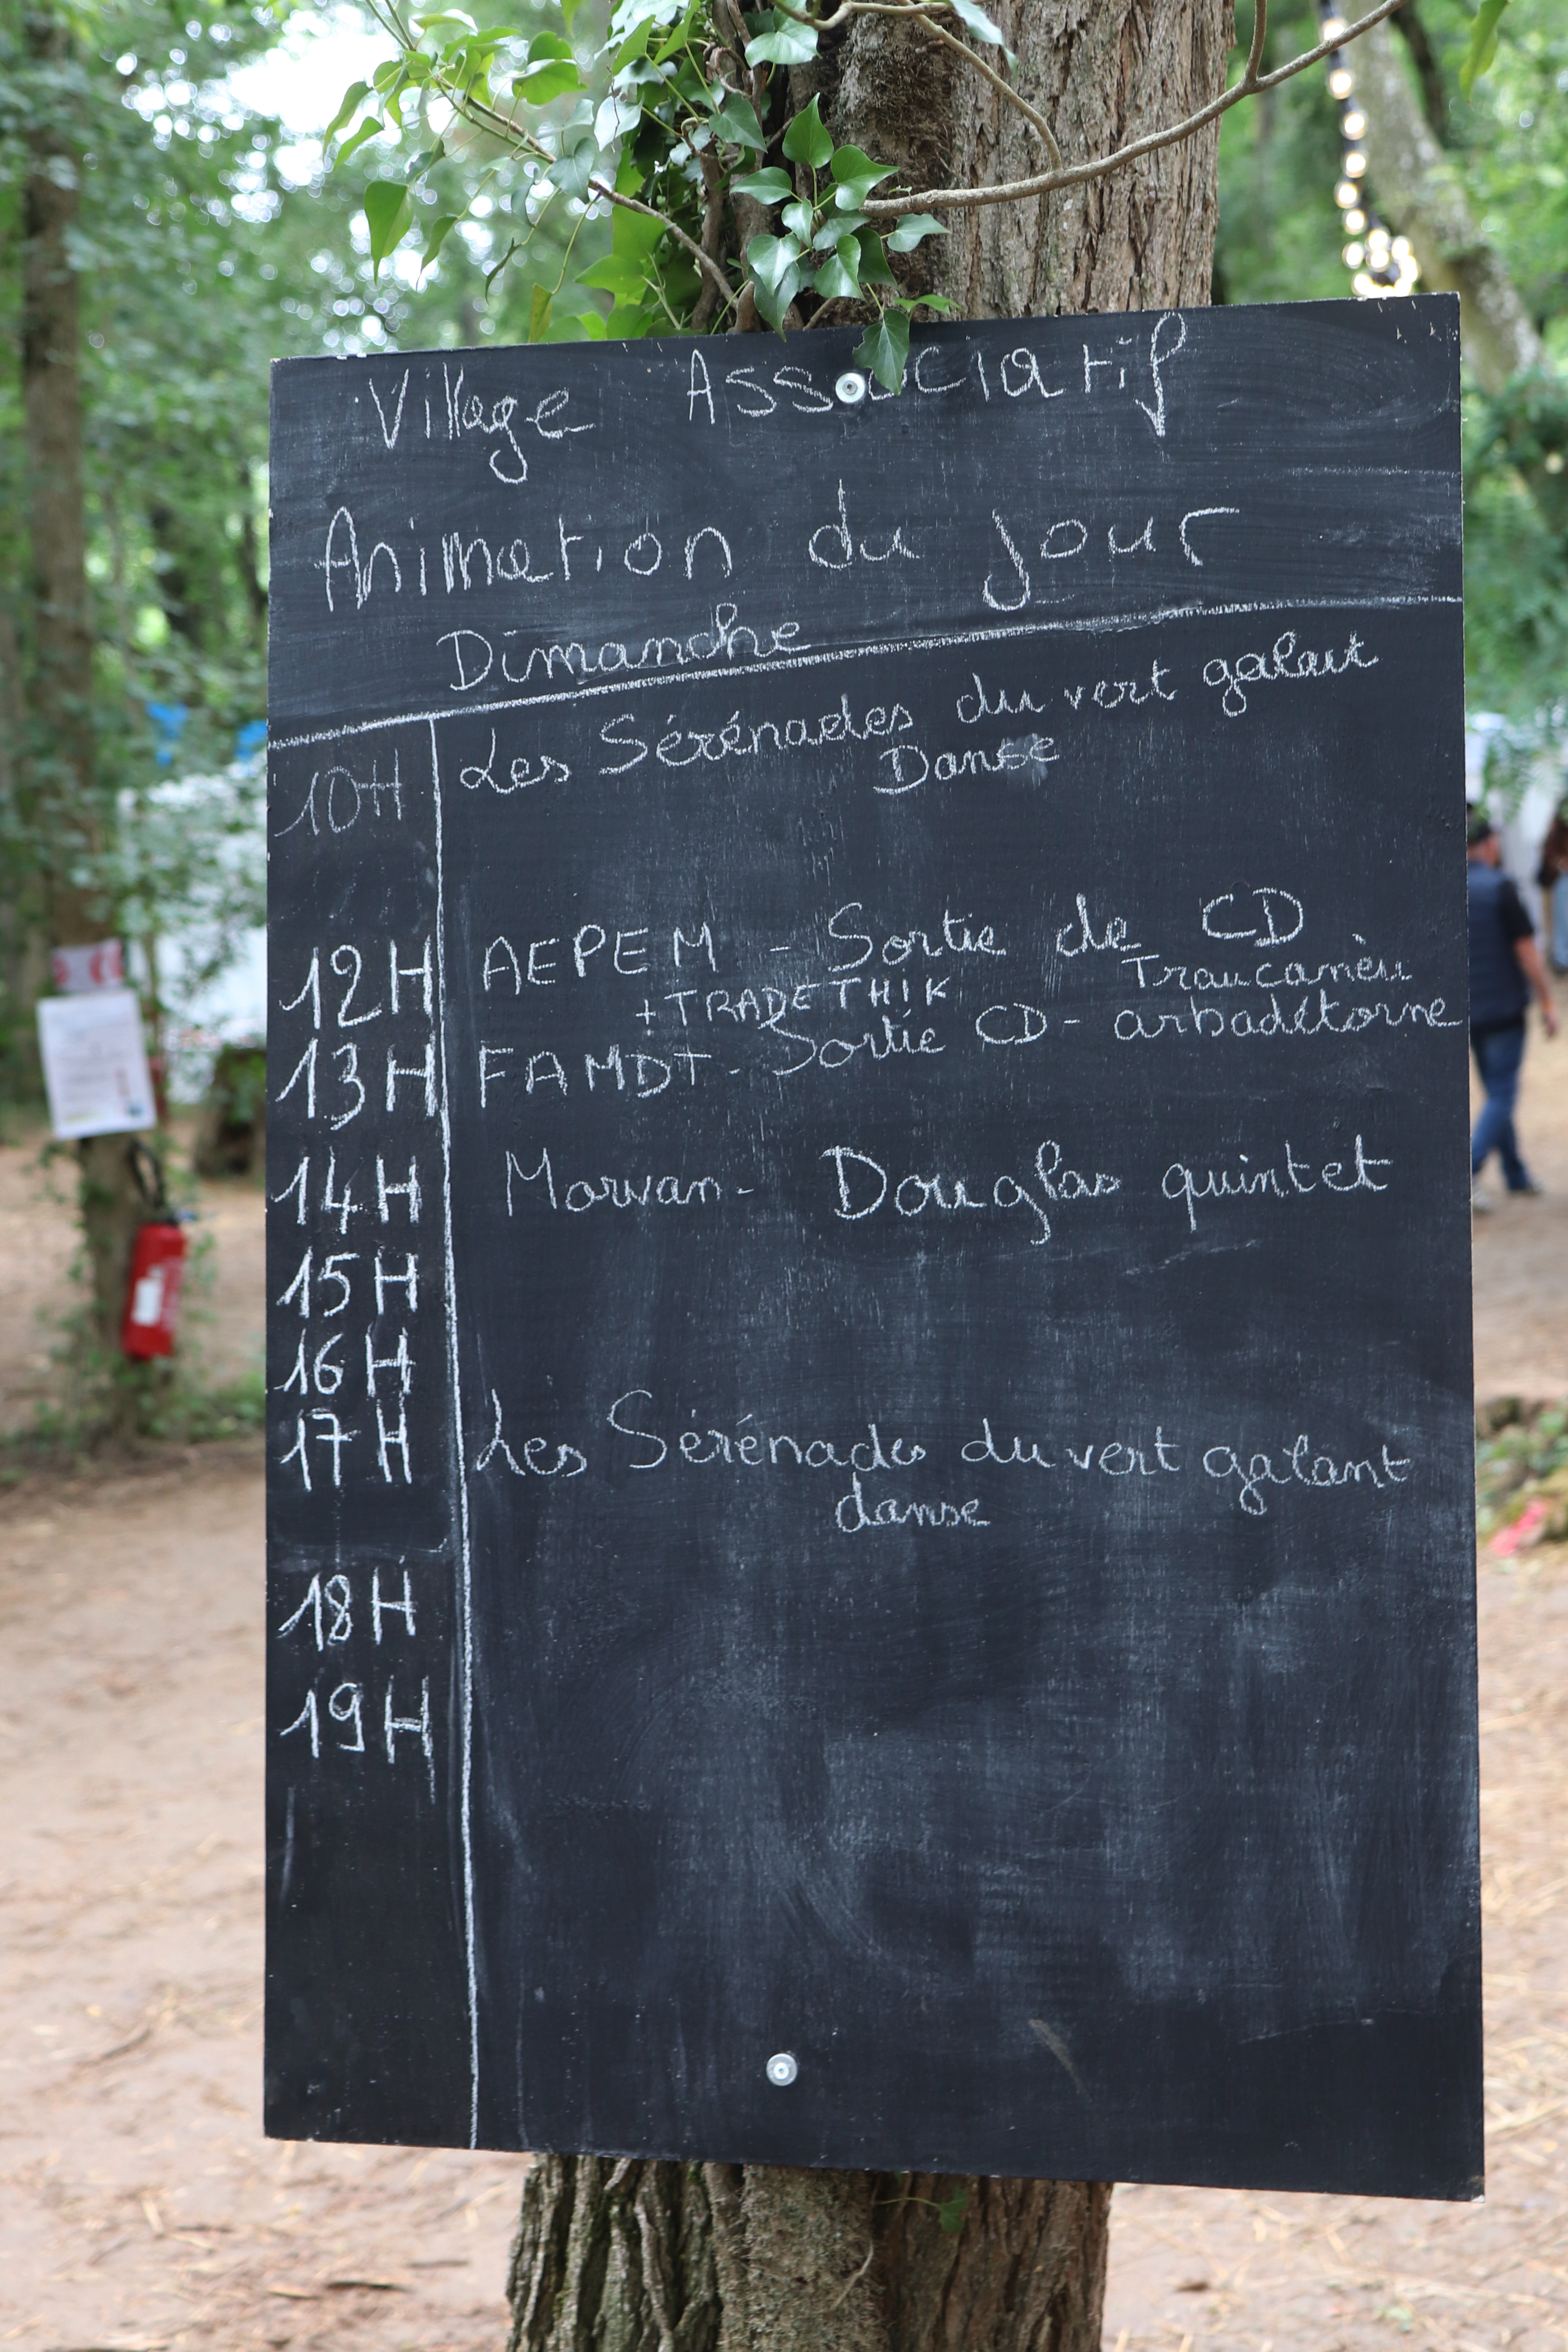 Village Associatif
Animation du jour
Dimanche
10H Les Sérénades du vert galant
Danse
12H AEPEM - Sortie de CD
+TRADETHIK Traucarrèu
13H FAMDT - Sortie CD - arbadétorne
14H Morvan - Douglas quintet
15H
16H
17H Les Sérénades du vert galant
danse
18H
19H